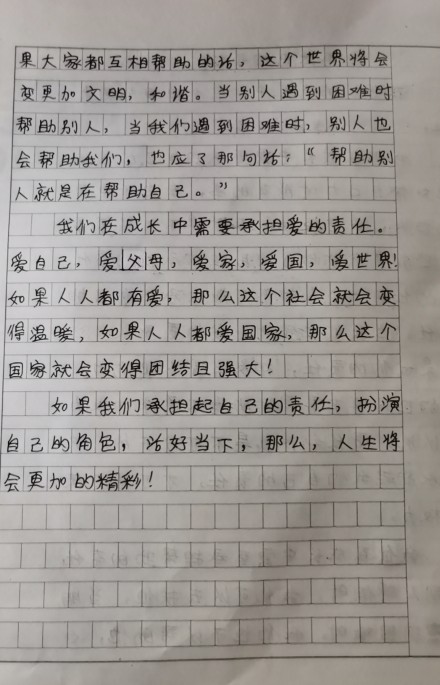 果大家都互相帮助的话，这个世界将会
变更加文明，和谐。当别人遇到困难时
帮助别人，当我们遇到困难时，别人也
会帮助我们，也应了那句话：“帮助别
人就是在帮助自己。”
我们在成长中需要承担爱的责任。
爱自己，爱父母，爱家，爱国，爱世界！
如果人人都有爱，那么这个社会就会变
得温暖，如果人人都爱国家，那么这个
国家就会变得团结且强大！
如果我们承担起自己的责任，扮演
自己的角色，活好当下，那么，人生将
会更加的精彩！